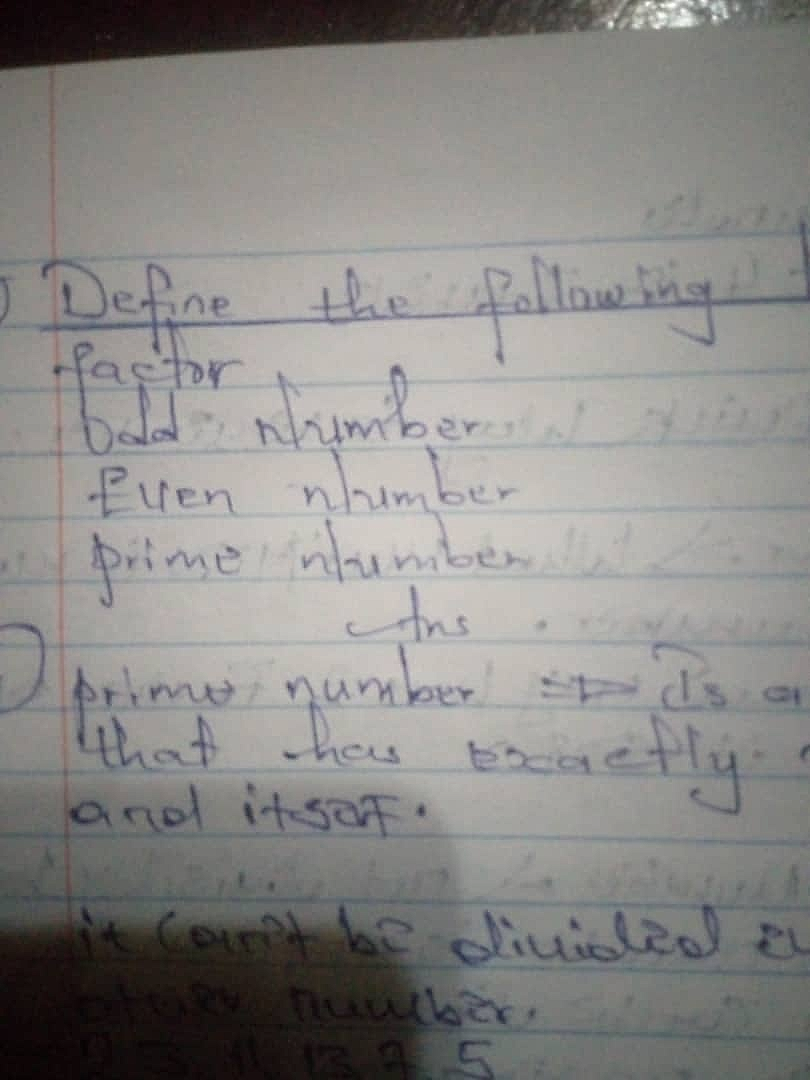 Define the following
factor
odd number
Even number
prime number
Ans
prime number => Is a
that has exactly
and itself.
it can't be divided
other number.
3, 11, 13, 7, 5